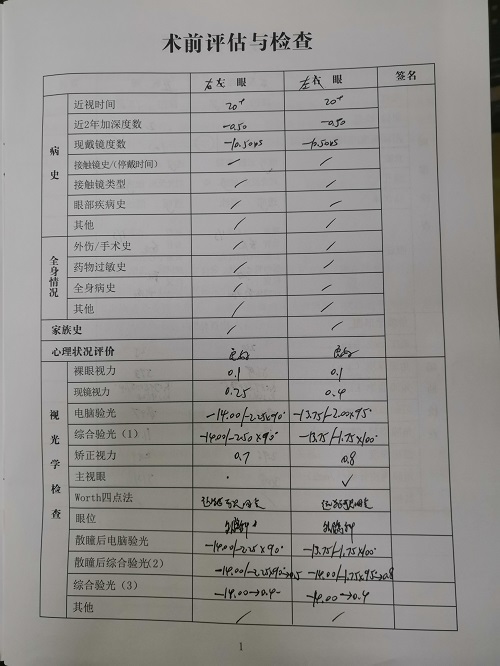 术前评估与检查
右左 眼 左右 眼 签名
病史
近视时间 20+ 20+
近2年加深度数 -0.50 -0.50
现戴镜度数 -10.50DS -10.50DS
接触镜史/(停戴时间) / /
接触镜类型 / /
眼部疾病史 / /
其他 / /
全身情况
外伤/手术史 / /
药物过敏史 / /
全身病史 / /
其他 / /
家族史 / /
心理状况评价 良好 良好
视光学检查
裸眼视力 0.1 0.1
现镜视力 0.25 0.4
电脑验光 -14.00/-2.25×90° -13.75/-2.00×95°
综合验光（1） -14.00/-2.50×90° -13.75/-1.75×100°
矫正视力 0.7 0.8
主视眼 ✓
Worth四点法
眼位
散瞳后电脑验光 -14.00/-2.25×90° -13.75/-1.75×100°
散瞳后综合验光(2) -14.00/-2.25×90→0.5 -14.00/-1.75×95→0.8
综合验光（3） -14.00→0.4 -14.00→0.4
其他 / /
1